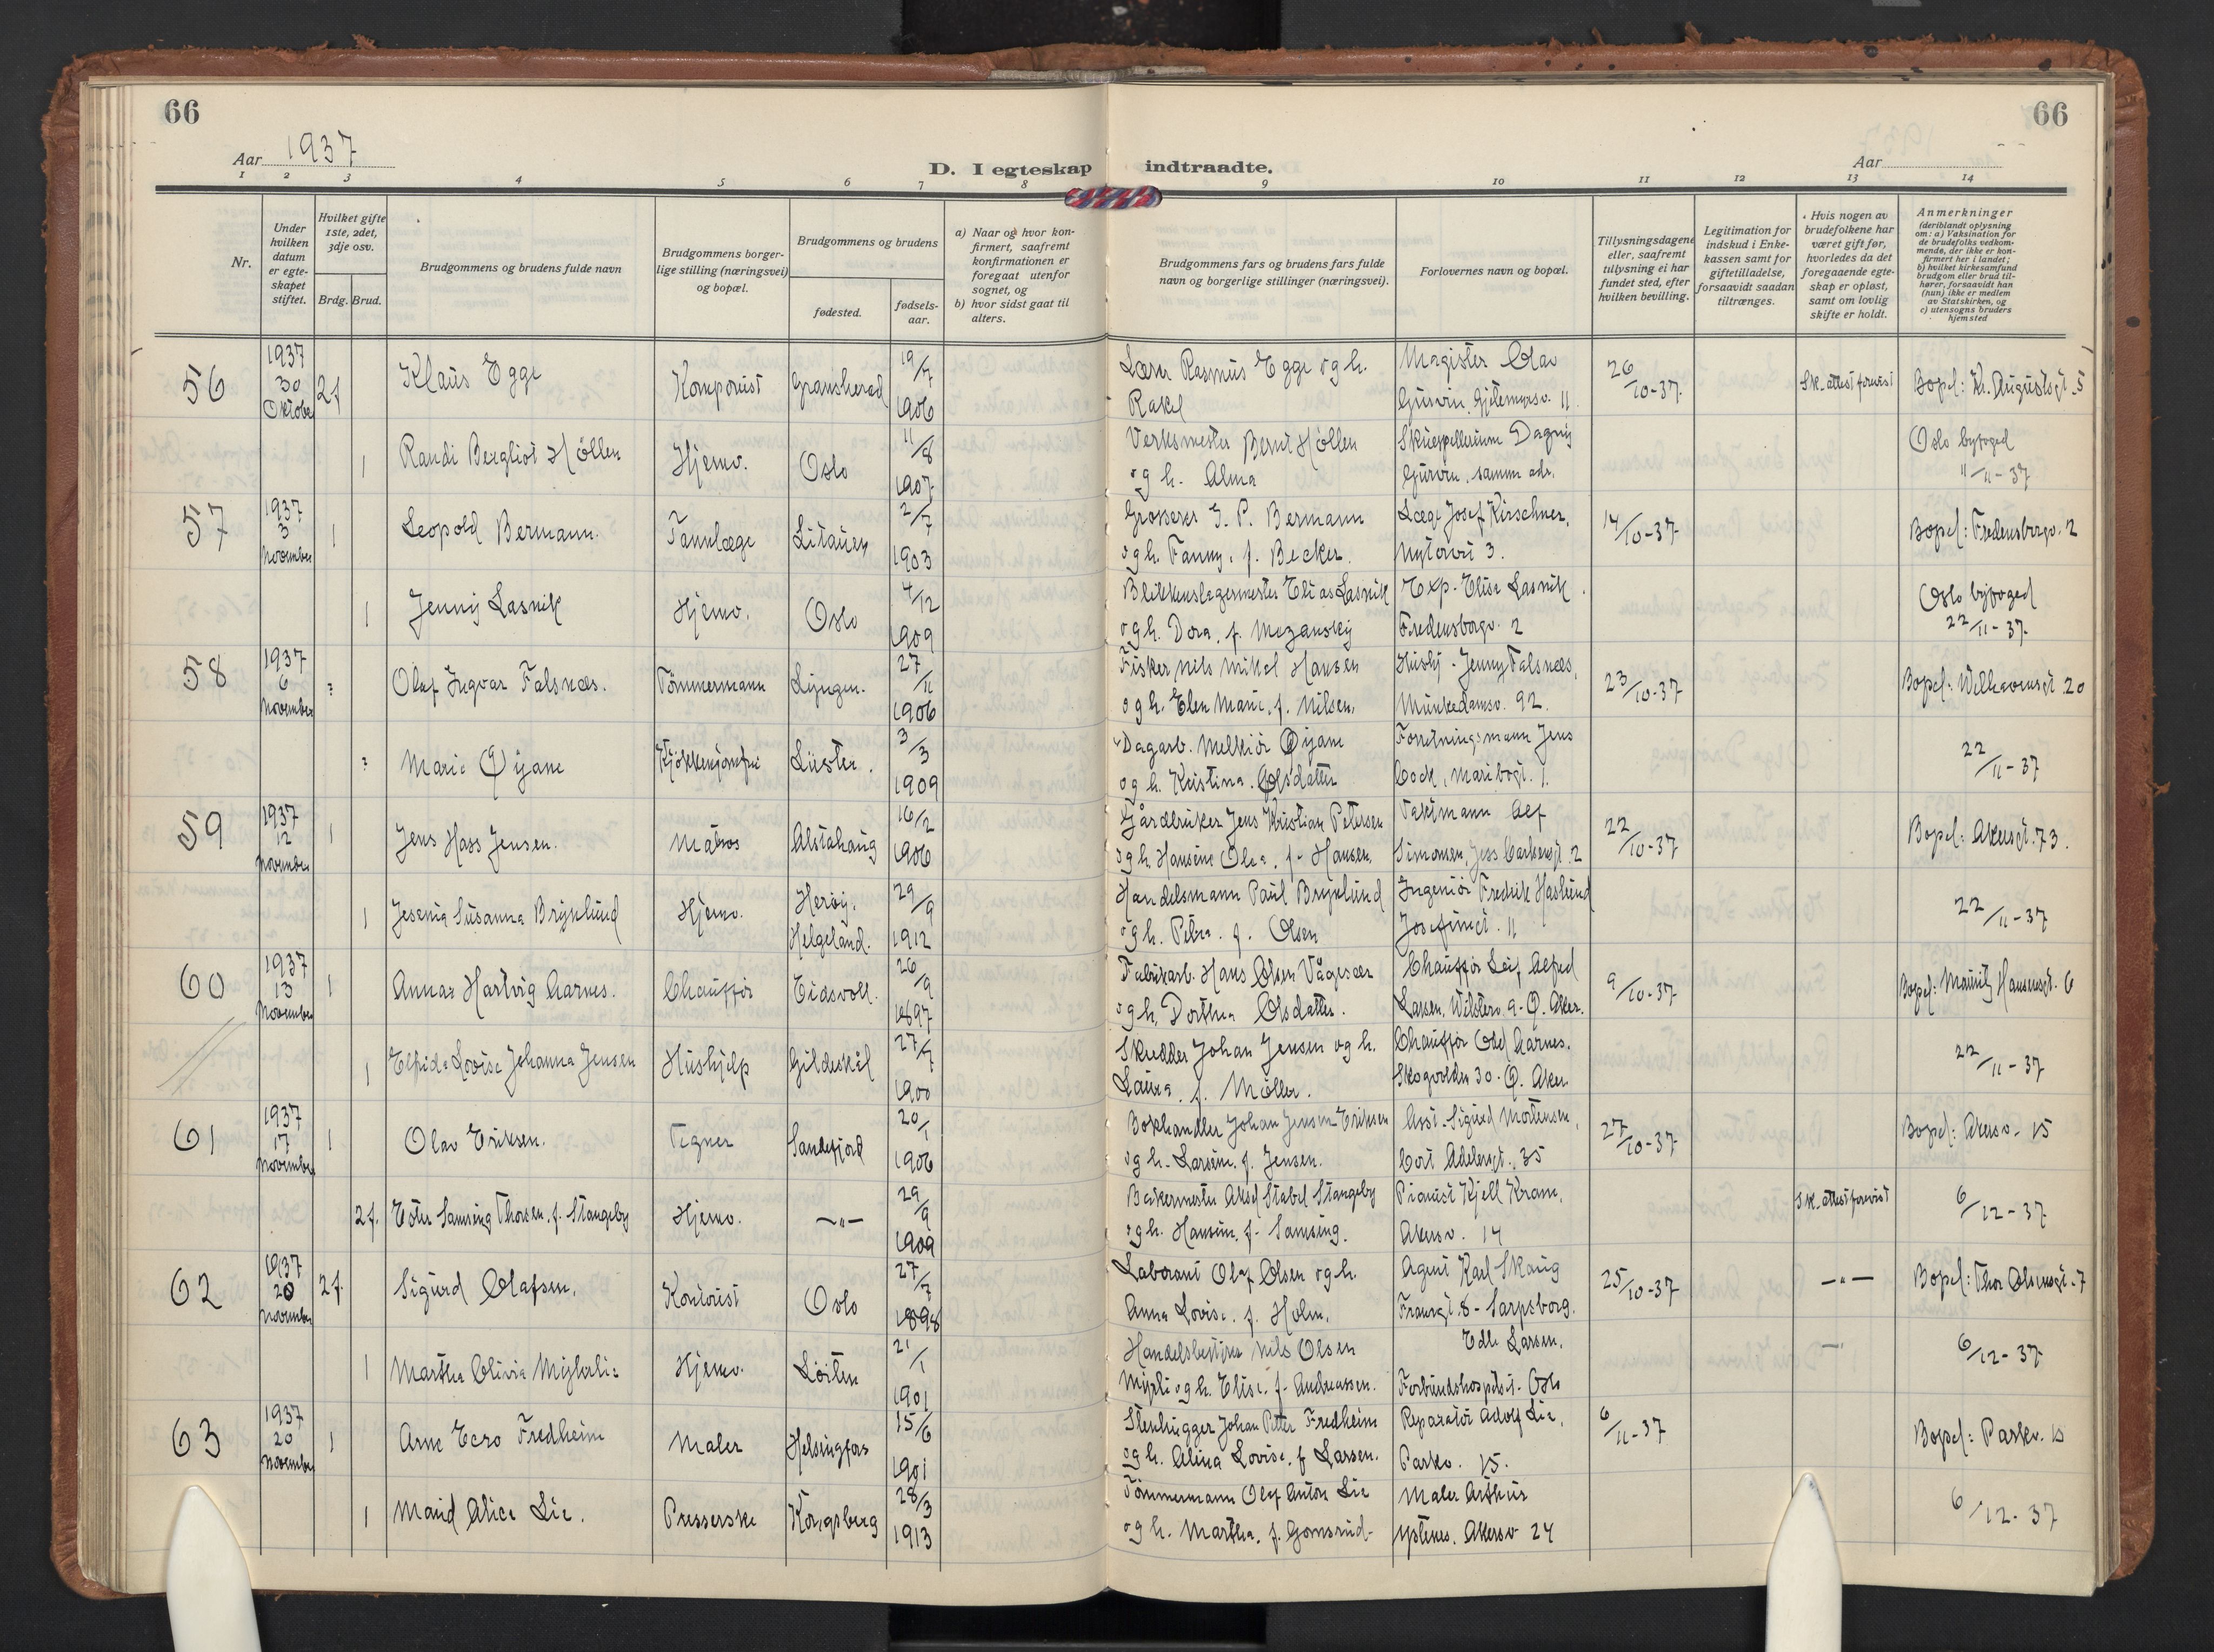 66
Aar 1937
D. I egteskap indtraadte.
66
Aar
1 2 3 4 5 6 7 8 9 10 11 12 13 14
Nr.
Under hvilken datum er egteskapet stiftet.
Hvilket gifte 1ste, 2det, 3dje osv.
Brdg. Brud.
Brudgommens og brudens fulde navn
Brudgommens borgerlige stilling (næringsvei) og bopæl.
Brudgommens og brudens
fødested.
fødselsaar.
a) Naar og hvor konfirmert, saafremt konfirmationen er foregaat utenfor sognet, og
b) hvor sidst gaat til alters.
Brudgommens fars og brudens fars fulde navn og borgerlige stillinger (næringsvei).
Forlovernes navn og bopæl.
Tillysningsdagene eller, saafremt tillysning ei har fundet sted, efter hvilken bevilling.
Legitimation for indskud i Enkekassen samt for giftetilladelse, forsaavidt saadan tiltrænges.
Hvis nogen av brudefolkene har været gift før, hvorledes da det foregaaende egteskap er opløst, samt om lovlig skifte er holdt.
Anmerkninger (deriblandt oplysning om: a) Vaksination for de brudefolks vedkommende, der ikke er konfirmert her i landet; b) hvilket kirkesamfund brudgom eller brud tilhører, forsaavidt han (hun) ikke er medlem av Statskirken, og c) utensogns bruders hjemsted
56 1937 30 Oktober 2f Klaus Egge Komponist Gransherad 19/7 1906 Lærer Rasmus Egge og h. Rakel Magister Olav Gurvin, Gjetemyrsv. 11 26/10-37 Sk. attest forevist Bopel: Kr. Augustsgt. 5
1 Randi Bergliot Höllen Hjemv. Oslo 11/8 1907 Verksmester Bernt Höllen og h. Alma Skuespillerinne Dagny Gurvin, samm adr. Oslo byfoged 11/11-37
57 1937 3 November 1 Leopold Bermann. Tannlæge Litauen 2/7 1903 Grosserer I. P. Bermann og h. Fanny, f. Becker. Læge Josef Kirschner, Nytorvt 3. 14/10-37 Bopel: Fredensborgv. 2
1 Jenny Lasnik Hjemv. Oslo 4/12 1909 Blikkenslagermester Elias Lasnik og h. Dora, f. Mozansky Exp. Elise Lasnik Fredensborgv. 2 Oslo byfoged 22/11-37
58 1937 6 November ? Olaf Ingvar Falsnæs. Tömmermann Lyngen. 27/11 1906 Fisker Nils Mikal Hansen og h. Elen Marie, f. Nilsen, Hushj. Jenny Falsnæs, Munkedamsv. 92. 23/10-37 Bopel: Welhavensgt 20
? Marie Öijane Kjökkenjomfru Luster. 3/3 1909 Dagarb. Melkiör Öijane og h. Kristina Olsdatter Forretningsmann Jens Cock, Maribogt. 1. 22/11-37
59 1937 12 November 1 Jens Hass Jensen. Matros Alstahaug 16/2 1906 Gårdbruker Jens Kristian Petersen og h. Hansine Olea, f. Hansen. Takstmann Alf Simonsen, Jess Carlsensgt. 2 22/10-37 Bopel: Akersgt. 73.
1 Jesenia Susanna Bryklund Hjemv. Heröy, Helgeland. 29/9 1912 Handelsmann Paul Bryklund og h. Petra, f. Olsen Ingeniör Fredrik Haslund Josefinegt. 11 22/11-37
60 1937 13 November 1 Annar Hartvig Aarnes. Chaufför Eidsvoll. 26/9 1897 Fabrikarb. Hans Olsen Vågesær og h. Dorthea Olsdatter. Chauffør Leif Alfred Larsen, Wilsterv. 9 - Ö. Aker. 9/10-37 Bopel: Mauritz Hansensgt. 6
1 Elfrida Lovise Johanna Jensen Hushjelp Gildeskål 27/7 1900 Skredder Johan Jensen og h. Laura, f. Möller. Chauffør Odd Aarnes. Skogvolden 30 - Ö. Aker 22/11-37
61 1937 17 November 1 Olav Eriksen. Tegner Sandefjord 20/1 1906 Bokhandler Johan Jensen Eriksen og h. Larsine, f. Jensen. Asst. Sigurd Mortensen, Cort Adelersgt. 35 27/10-37 Bopel: Akersv. 15
2f. Ester Samsing Thorsen, f. Stangeby Hjemv. —"— 29/9 1909 Bakermester Aksel Stabel Stangeby og h. Hansine, f. Samsing. Pianist Kjell Kram, Akersv. 14 Sk. attest forevist 6/12-37
62 1937 20 November 2f. Sigurd Olafsen. Kontorist Oslo 27/7 1898 Laborant Olaf Olsen og h. Anna Lovise, f. Holm. Agent Karl Skaug Fransgt. 8 - Sarpsborg. 25/10-37 —"— Bopel: Thor Olsensgt. 7
1 Martha Olivia Myhrlie Hjemv. Löiten 21/1 1901 Handelsbestyrer Nils Olsen Myrli og h. Elise, f. Andreassen. Edle Larsen, Forbundshospitst. Oslo —"— 6/12-37
63 1937 20 November 1 Arne Eero Fredheim Maler Helsingfors 15/6 1901 Stenhugger Johan Petter Fredheim og h. Alina Lovise, f. Larsen. Reparatör Adolf Lie, Parkv. 15. 6/11-37 Bopel: Parkv. 15
1 Maud Alice Lie. Presserske Kongsberg 28/3 1913 Tömmermann Olaf Anton Lie og h. Martha, f. Gomsrud Maler Arthur Ystenes. Akersv 24 6/12-37